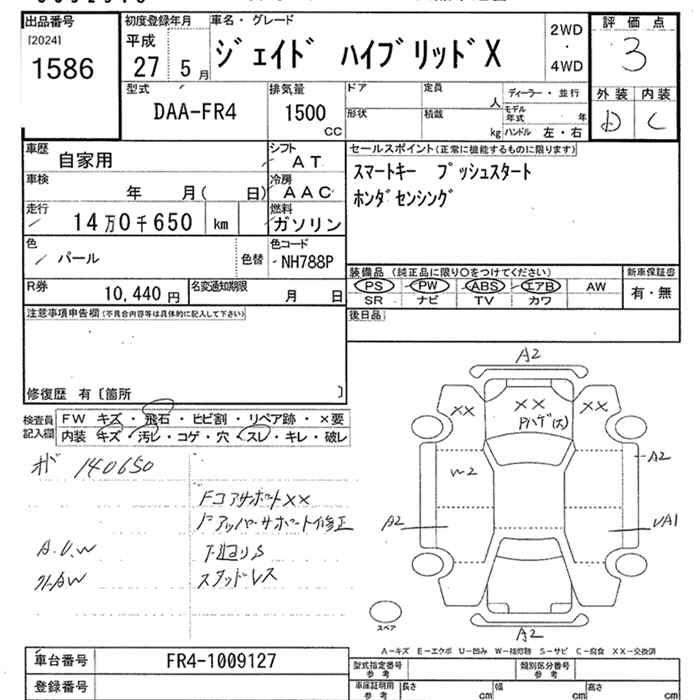 出品番号 初度登録年月 車名・グレード 評価点
[2024] 平成 2WD
1586 27 5月 ジェイド ハイブリッドX ・ 3
4WD
型式 排気量 ドア 定員 ディーラー・並行 外装 内装
DAA-FR4 1500 人 モデル年式 年 D C
cc 形状 積載 kg ハンドル 左・右
車歴 自家用 シフト AT セールスポイント(正常に機能するものに限ります)
車検 年 月( 日) 冷房 AAC スマートキー プッシュスタート
走行 14万0千650 km 燃料 ガソリン ホンダセンシング
色 パール 色替 色コード NH788P
装備品 (純正品に限り○をつけてください) 新車保証書
R券 10,440円 名変通知期限 月 日 PS PW ABS エアB AW 有・無
SR ナビ TV カワ
注意事項申告欄(不具合内容等は具体的に記入して下さい) 後日品
修復歴 有〔箇所 〕
検査員 FW キズ・飛石・ヒビ割・リペア跡・×要
記入欄 内装 キズ・汚レ・コゲ・穴・スレ・キレ・破レ
140650
FコアサポートXX
Fアッパーサポート修正
A.U.W 下廻りS
スタッドレス
A2
XX XX XX
Pハゲ(ス)
W2 A2
A2 UA1
A2
スペア
A-キズ E-エクボ U-凹み W-補修跡 S-サビ C-腐食 XX-交換済
車台番号 FR4-1009127 型式指定番号 参考 類別区分番号 参考
登録番号 車庫証明用 参考 長さ cm 幅 cm 高さ cm